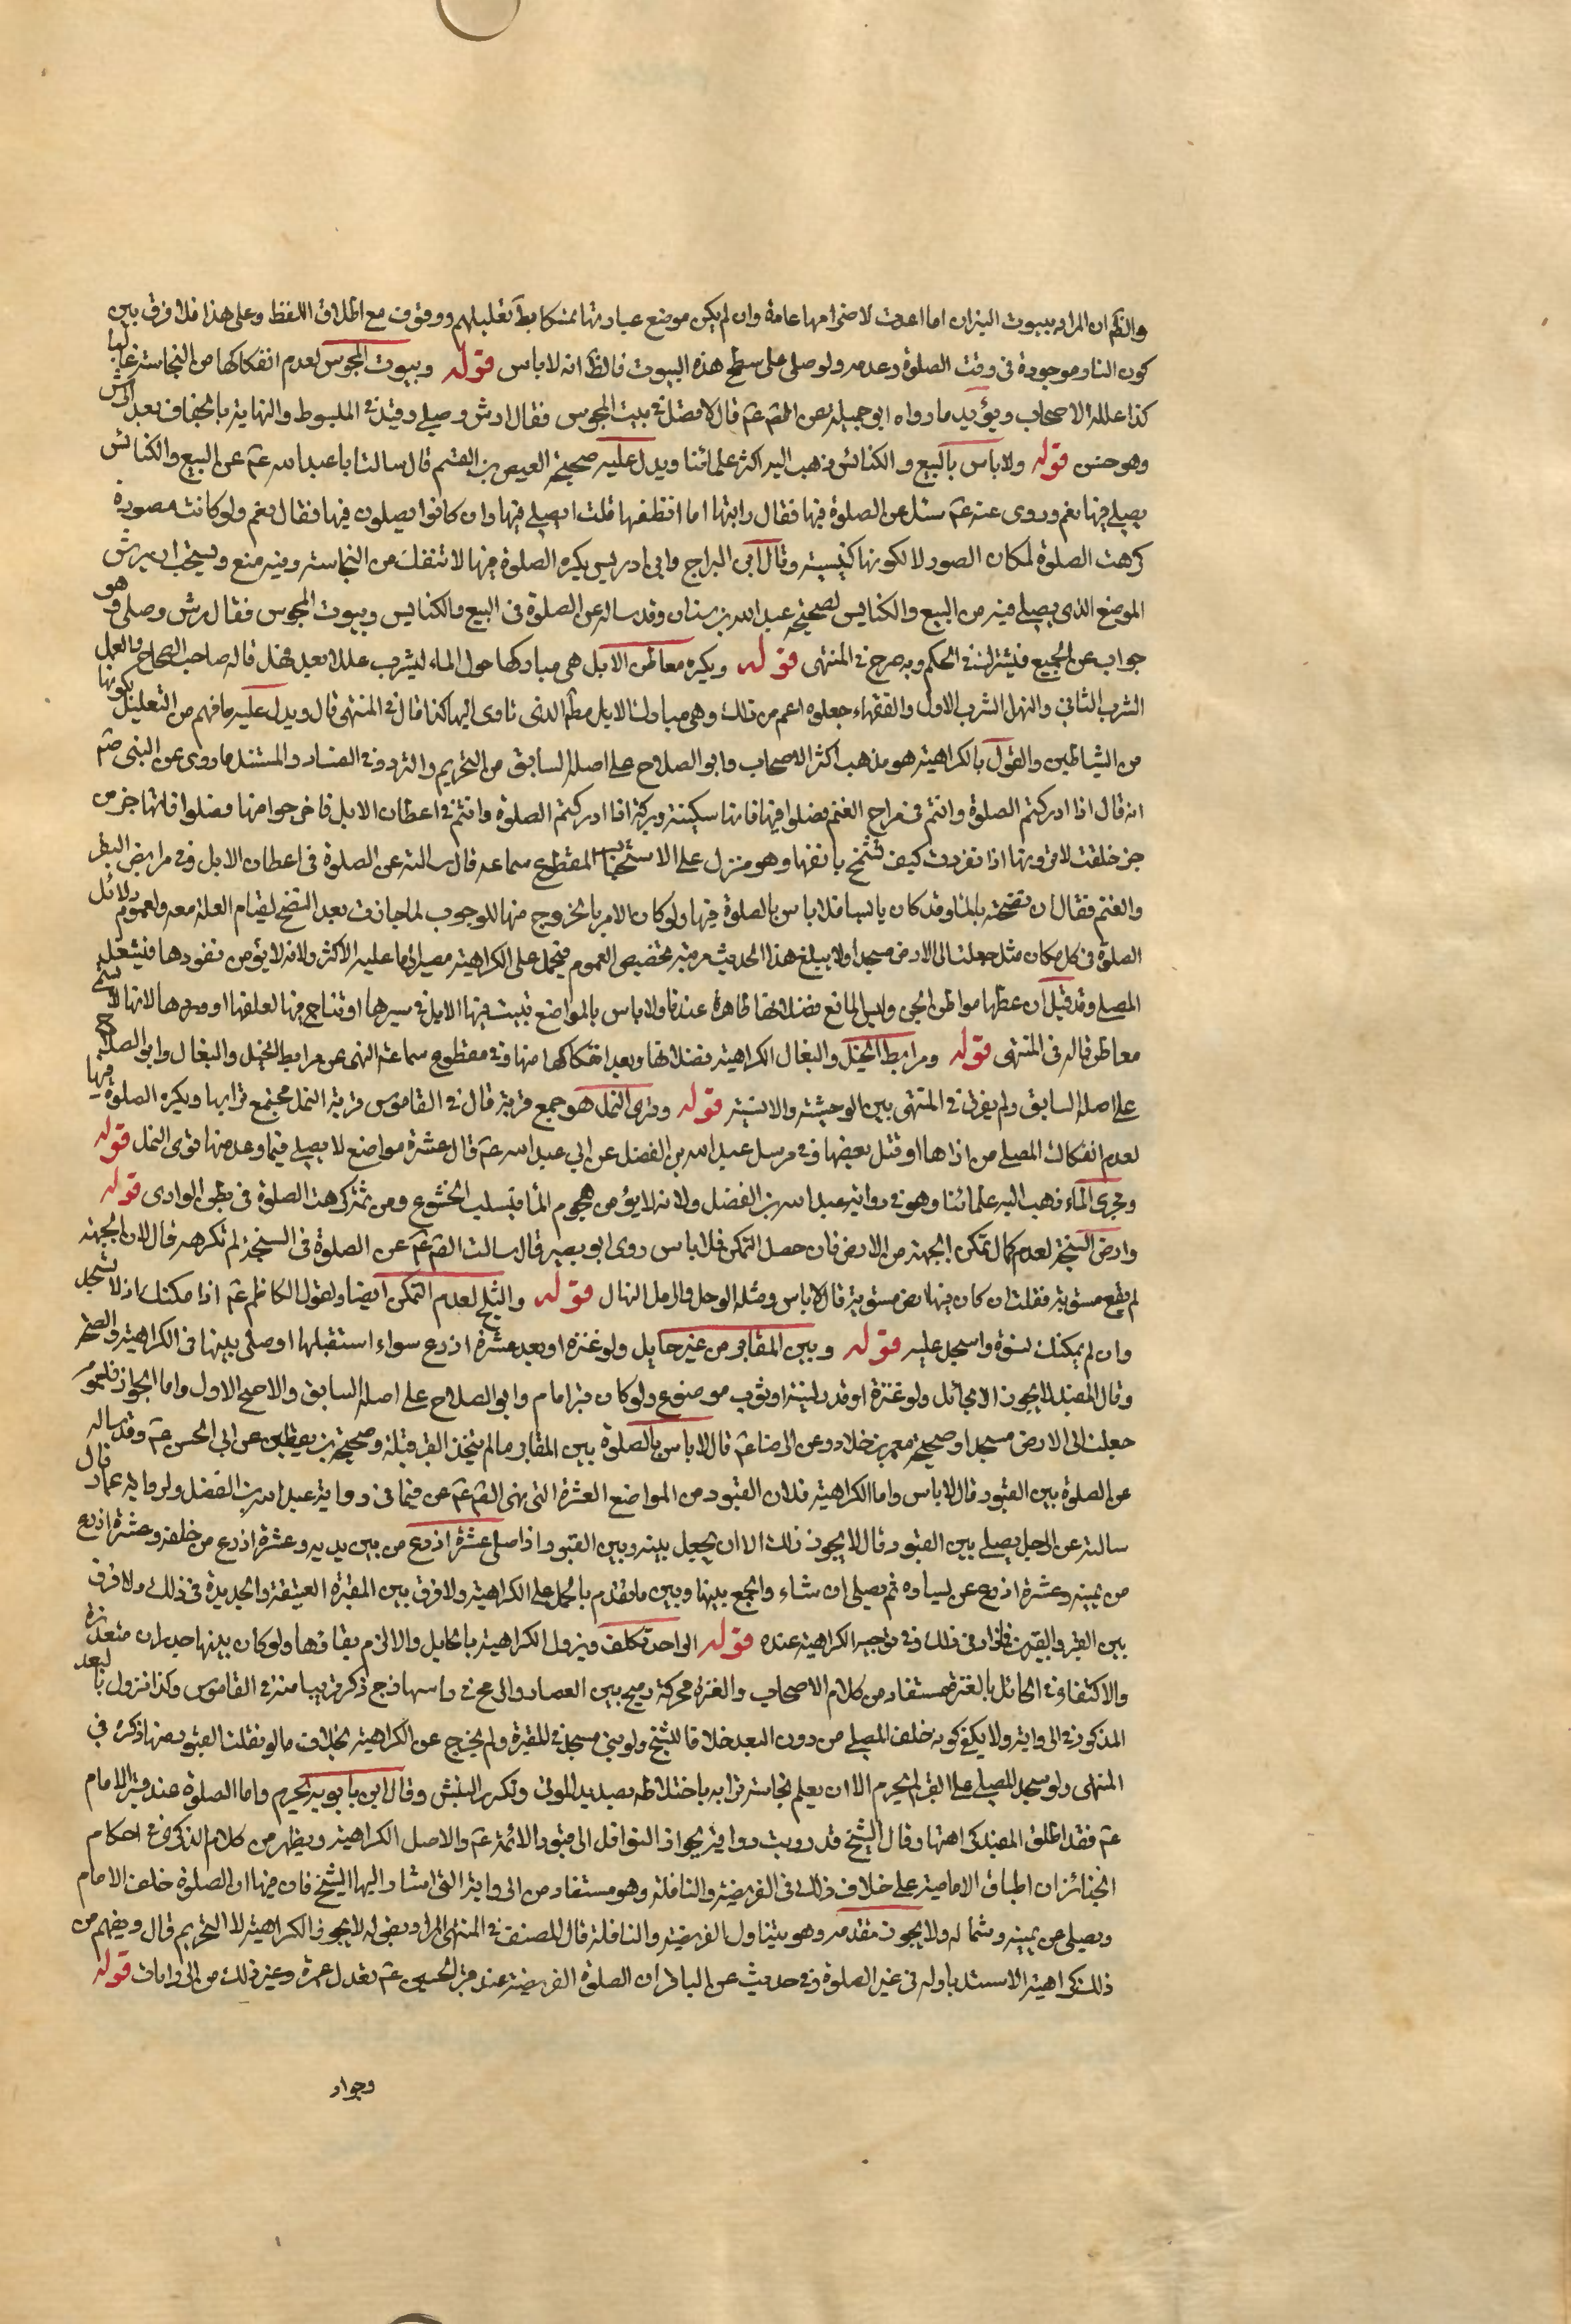 والظ ان المراد ببيوت النيران اما اعدت لاضرامها عامة وان لم يكن موضع عبادتها تمسكا بظ تعليلهم ووقوف مع اطلاق اللفظ وعلى هذا فلا فرق بين
كون النار موجودة فى وقت الصلوة وعدمه ولو صلى على سطح هذه البيوت فالظ انه لا باس قوله وبيوت المجوس لعدم انفكاكها من النجاسة غالبا
كذا علله الاصحاب ويؤيد ما رواه ابو جميلة عن الصم عم قال لا تصل فى بيت المجوس فقال ارش وصلى وقيد فى المبسوط والنهاية بالجفاف بعد الرش
وهو حسن قوله ولا باس بالبيع والكنائس ذهب اليه اكثر علمائنا ويدل عليه صحيحة العيص بن القسم قال سالت ابا عبد الله عم عن البيع والكنائس
يصلى فيها نعم وروى عنه عم سئل عن الصلوة فيها فقال رايتها اما انظفها قلت ايصلى فيها وان كانوا يصلون فيها فقال نعم ولو كانت مصورة
كرهت الصلوة لمكان الصور لا لكونها كنيسة وقال ابن البراج وابن ادريس يكره الصلوة فيها لا تنفك من النجاسة وفيه منع ويستحب ان يرش
الموضع الذى يصلى فيه من البيع والكنايس لصحيحة عبد الله بن سنان وقد ساله عن الصلوة فى البيع والكنايس وبيوت المجوس فقال رش وصلى وهو
جواب عن الجميع فيشترك فى الحكم وبه صرح فى المنتهى قوله ويكره معاطن الابل هى مباركها حول الماء ليشرب عللا بعد نهل قاله صاحب الصحاح والعلل
الشرب الثانى والنهل الشرب الاول والفقهاء جعلوه اعم من ذلك وهى مبارك الابل مطم الذى تاوى اليها كذا قال فى المنتهى قال ويدل عليه ما فهم من التعليل بكونها
من الشياطين والقول بالكراهية هو مذهب اكثر الاصحاب وابو الصلاح على اصله السابق من التحريم والتردد فى الفساد والمستند ما روى عن النبى صم
انه قال اذا ادركتم الصلوة وانتم فى مراح الغنم فصلوا فيها فانها سكينة وبركة واذا ادركتم الصلوة وانتم فى اعطان الابل فاخرجوا منها فصلوا فانها جن من
جن خلقت لا ترونها اذا نفرت كيف تشمخ بانفها وهو منزل على الاستحباب لمقطوع سماعه قال سالته عن الصلوة فى اعطان الابل وفى مرابض البقر
والغنم فقال ان نضحته بالماء وقد كان يابسا فلا باس بالصلوة فيها ولو كان الامر بالخروج منها للوجوب لما جازت بعد النضح لقيام العلة معه ولعموم دلائل
الصلوة فى كل مكان مثل جعلت لى الارض مسجدا ولا يبلغ هذا الحديث مرتبة تخصيص العموم فيحمل على الكراهية مصيرا لما عليه الاكثر ولانه لا يؤمن نفورها فيشغل
المصلى وقد قيل ان عطنها مواطن الجن وليس المانع فضلاتها طاهرة عندنا ولا باس بالمواضع تبيت فيها الابل فى سيرها او تناخ فيها لعلفها او وردها لانها لا تسمى
معاطن قاله فى المنتهى قوله ومرابط الخيل والبغال الكراهية فضلاتها وبعد انفكاكها منها وفى مقطوع سماعه النهى عن مرابط الخيل والبغال وابو الصلاح
على اصله السابق ولم يفرق فى المنتهى بين الوحشية والانسية قوله وقرى النمل هو جمع قرية قال فى القاموس قرية النمل مجتمع ترابها ويكره الصلوة فيها
لعدم انفكاك المصلى من اذاها او قتل بعضها وفى مرسل عبد الله بن الفضل عن ابى عبد الله عم قال عشرة مواضع لا يصلى فيها وعد منها قرى النمل قوله
ومجرى الماء ذهب اليه علمائنا وهو فى رواية عبد الله بن الفضل ولانه لا يؤمن هجوم الماء فيسلب الخشوع ومن ثمة كرهت الصلوة فى بطن الوادى قوله
وارض السبخة لعدم كمال تمكن الجبهة من الارض فان حصل التمكن فلا باس روى ابو بصير قال سالت الصم عم عن الصلوة فى السبخة لم تكرهه قال لان الجبهة
لم تقع مستوية فقلت ان كان فيها ارض مستوية قال لا باس ومثله الوحل والرمل النهال قوله والثلج لعدم التمكن ايضا ولقول الكاظم عم اذا مكنك ان لا تسجد
وان لم يمكنك فسوه واسجد عليه قوله وبين المقابر من غير حايل ولو عنزه او بعد عشرة اذرع سواء استقبلها او صلى بينها فى الكراهية والصحة
وقال المفيد لا يجوز الا بحائل ولو عنزة او قدر لبنة او ثوب موضوع ولو كان قبر امام وابو الصلاح على اصله السابق والاصح الاول واما الجواز فلعموم
جعلت لى الارض مسجدا وصحيحة معمر بن خلاد وعن الرضا عم قال لا باس بالصلوة بين المقابر ما لم يتخذ القبر قبلة وصحيحة بن يقطين عن ابى الحسن عم وقد ساله
عن الصلوة بين القبور قال لا باس واما الكراهية فلان القبور من المواضع العشرة التى نهى الصم عم عن فيها فى رواية عبد الله بن الفضل ولرواية عمار قال
سالته عن الرجل يصلى بين القبور قال لا يجوز ذلك الا ان يجعل بينه وبين القبور اذا صلى عشرة اذرع من بين يديه وعشرة اذرع من خلفه وعشرة اذرع
من يمينه وعشرة اذرع عن يساره ثم يصلى ان شاء والجمع بينها وبين ما تقدم بالحمل على الكراهية ولا فرق بين المقبرة العتيقة والجديدة فى ذلك ولا فرق
بين القبر والقبرين فما زاد فى ذلك وفى توجيه الكراهية عنده قوله الواحد تكلف ويزول الكراهية بالحايل والا لزم بقاؤها ولو كان بينها جدران متعددة
والاكتفاء فى الحائل بالعنزة مستفاد من كلام الاصحاب والعنزه محركة رميح بين العصا والرمح فى راسها زج ذكر قريبا منه فى القاموس وكذا تزول بالبعد
المذكور فى الرواية ولا يكفى كونه خلف المصلى من دون البعد خلافا للشيخ ولو بنى مسجد فى المقبرة ولم يخرج عن الكراهية بخلاف ما لو نقلت القبور منها ذكره فى
المنتهى ولو سجد المصلى على القبر لم يحرم الا ان يعلم نجاسة ترابه باختلاطه بصديد الموتى وتكرر النبش وقال ابن بابويه يحرم واما الصلوة عند قبر الامام
عم فقد اطلق المفيد كراهتها وقال الشيخ قد رويت رواية بجواز النوافل الى قبور الائمة عم والاصل الكراهية ويظهر من كلام الذكرى فى احكام
الجنائز ان اطباق الامامية على خلاف ذلك فى الفريضة والنافلة وهو مستفاد من الرواية التى اشار اليها الشيخ فان فيها ان الصلوة خلف الامام
ويصلى عن يمينه وشماله ولا يجوز تقدمه وهو يتناول الفريضة والنافلة قال المصنف فى المنتهى المراد بقوله لا يجوز الكراهية لا التحريم قال ويفهم من
ذلك كراهية الاستدبار له فى غير الصلوة وفى حديث عن الباقر ان الصلوة الفريضة عند قبر الحسين عم تعدل عمرة وغير ذلك من الروايات قوله
وجواد